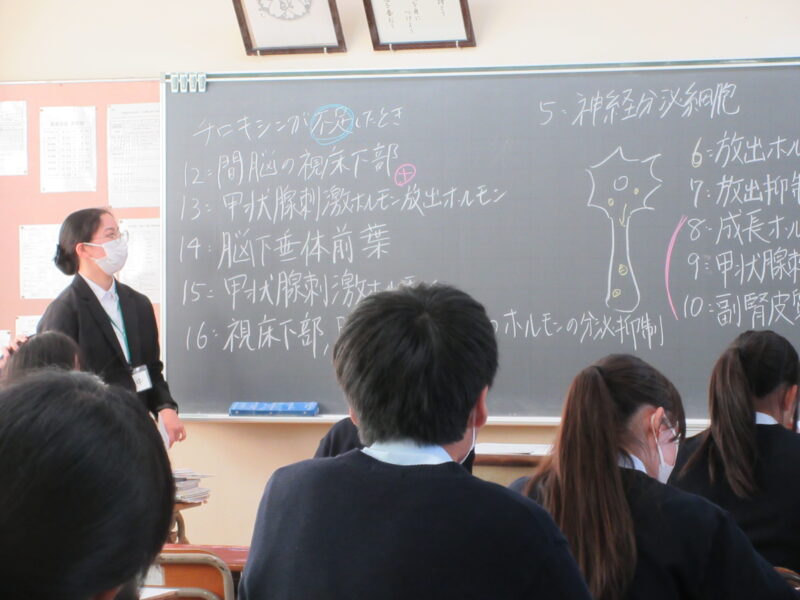 チロキシンが不足したとき
12:間脳の視床下部
+
13:甲状腺刺激ホルモン放出ホルモン
14:脳下垂体前葉
15:甲状腺刺激ホル
16:視床下部,
ホルモンの分泌抑制
5:神経分泌細胞
6:放出ホル
7:放出抑
8:成長ホル
9:甲状腺刺
10:副腎皮